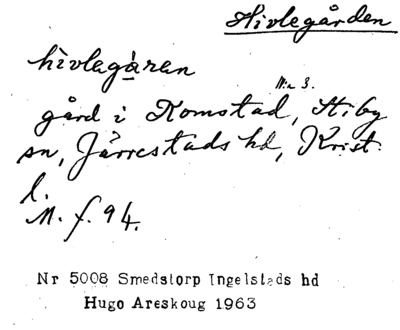 Hivlegården
hìvlagàren
Nr 3.
gård i Komstad, Stiby
sn, Järrestads hd, Krist.
l.
M. f. 94.
Nr 5008 Smedstorp Ingelstads hd
Hugo Areskoug 1963